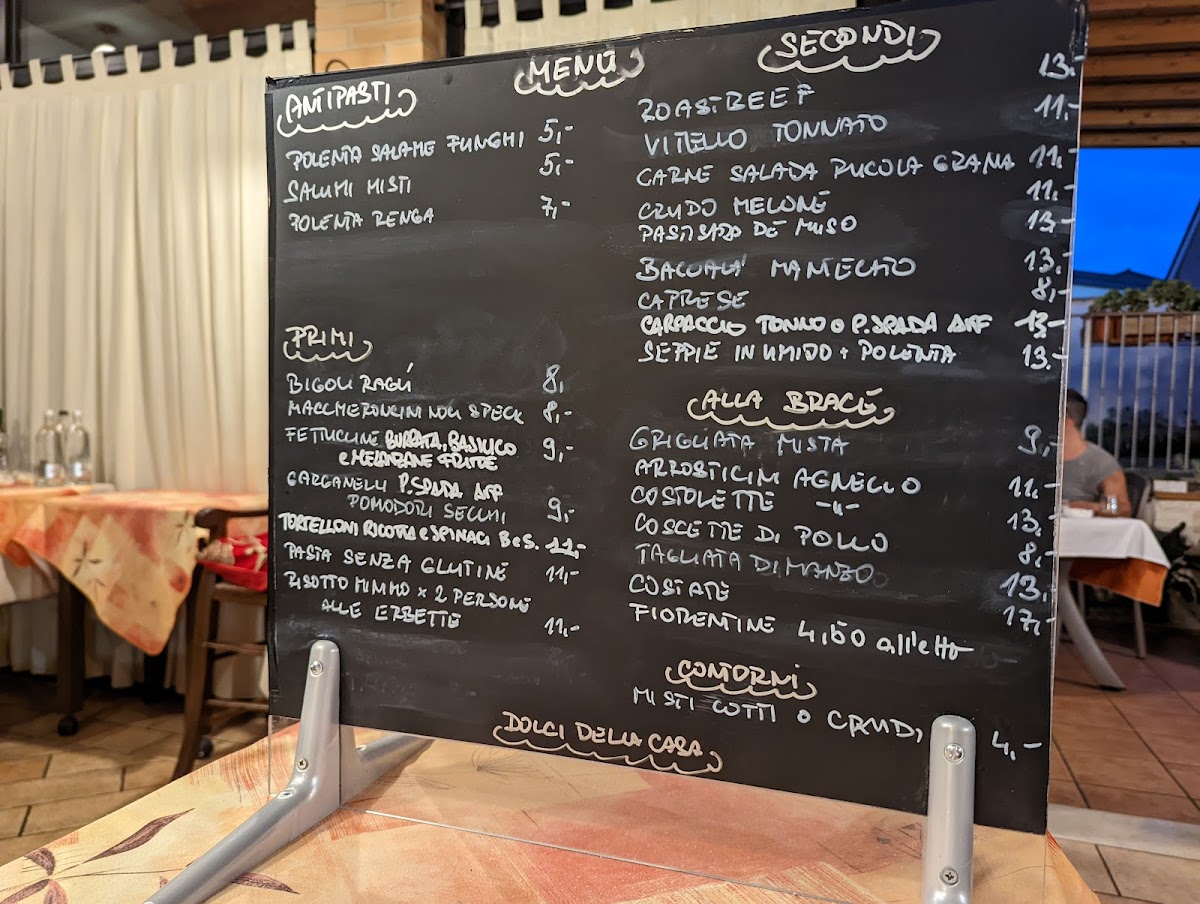 MENÙ
ANTIPASTI
POLENTA SALAME FUNGHI 5,-
SALUMI MISTI 5,-
POLENTA RENGA 7,-
PRIMI
BIGOLI RAGÙ 8,
MACCHERONCINI NOCI SPECK 8,-
FETTUCCINE BURRATA, BASILICO 9,-
e MELANZANE FRITTE
GARGANELLI P. SPADA AFF
POMODORI SECCHI 9,-
TORTELLONI RICOTTA e SPINACI B e S. 11,-
PASTA SENZA GLUTINE 11,-
RISOTTO MINIMO x 2 PERSONE
ALLE ERBETTE 11,-
SECONDI
ROASTBEEF 13.-
VITELLO TONNATO 11,-
CARNE SALADA RUCOLA GRANA 11,-
CRUDO MELONE 11,-
PASTISADA DE MUSO 13.-
BACCALA' MANTECATO 13.-
CAPRESE 8,-
CARPACCIO TONNO o P. SPADA AFF 13-
SEPPIE IN UMIDO + POLENTA 13.-
ALLA BRACE
GRIGLIATA MISTA 9,-
ARROSTICINI AGNELLO 11,-
COSTOLETTE -"- 13,-
COSCETTE DI POLLO 8,-
TAGLIATA DI MANZO 13,
COSTATE 17,-
FIORENTINE 4,50 all'etto
CONTORNI
MISTI COTTI O CRUDI 4,-
DOLCI DELLA CASA